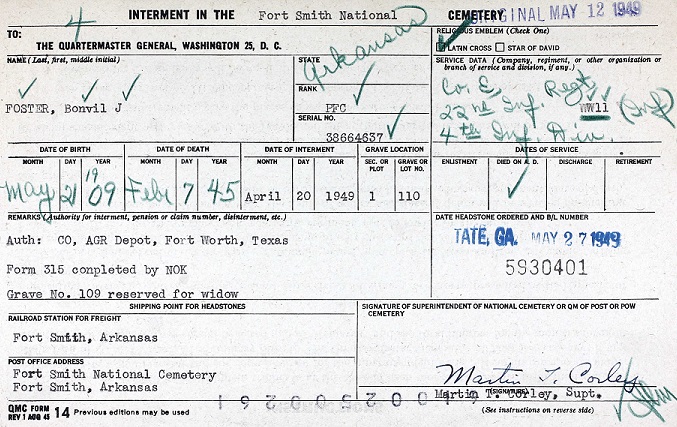 4
INTERMENT IN THE Fort Smith National CEMETERY
ORIGINAL MAY 12 1949
TO:
THE QUARTERMASTER GENERAL, WASHINGTON 25, D. C.
RELIGIOUS EMBLEM (Check One)
LATIN CROSS STAR OF DAVID
NAME (Last, first, middle initial)
FOSTER, Bonvil J
STATE
Arkansas
RANK
PFC
SERIAL NO.
38664637
SERVICE DATA (Company, regiment, or other organization or branch of service and division, if any.)
Co. E, Regt
22nd Inf. WW11 (Inf)
4th Inf. Div.
DATE OF BIRTH DATE OF DEATH DATE OF INTERMENT GRAVE LOCATION DATES OF SERVICE
MONTH DAY YEAR MONTH DAY YEAR MONTH DAY YEAR SEC. OR PLOT GRAVE OR LOT NO. ENLISTMENT DIED ON A. D. DISCHARGE RETIREMENT
May 21 1909 Feb 7 45 April 20 1949 1 110
REMARKS (Authority for interment, pension or claim number, disinterment, etc.)
Auth: CO, AGR Depot, Fort Worth, Texas
Form 315 conpleted by NOK
Grave No. 109 reserved for widow
DATE HEADSTONE ORDERED AND B/L NUMBER
TATE, GA. MAY 27 1949
5930401
SHIPPING POINT FOR HEADSTONES
RAILROAD STATION FOR FREIGHT
Fort Smith, Arkansas
POST OFFICE ADDRESS
Fort Smith National Cemetery
Fort Smith, Arkansas
SIGNATURE OF SUPERINTENDENT OF NATIONAL CEMETERY OR QM OF POST OR POW CEMETERY
Martin T. Corley
(SIGNATURE)
Martin T. Corley, Supt.
(See instructions on reverse side)
QMC FORM
REV 1 AUG 45 14 Previous editions may be used